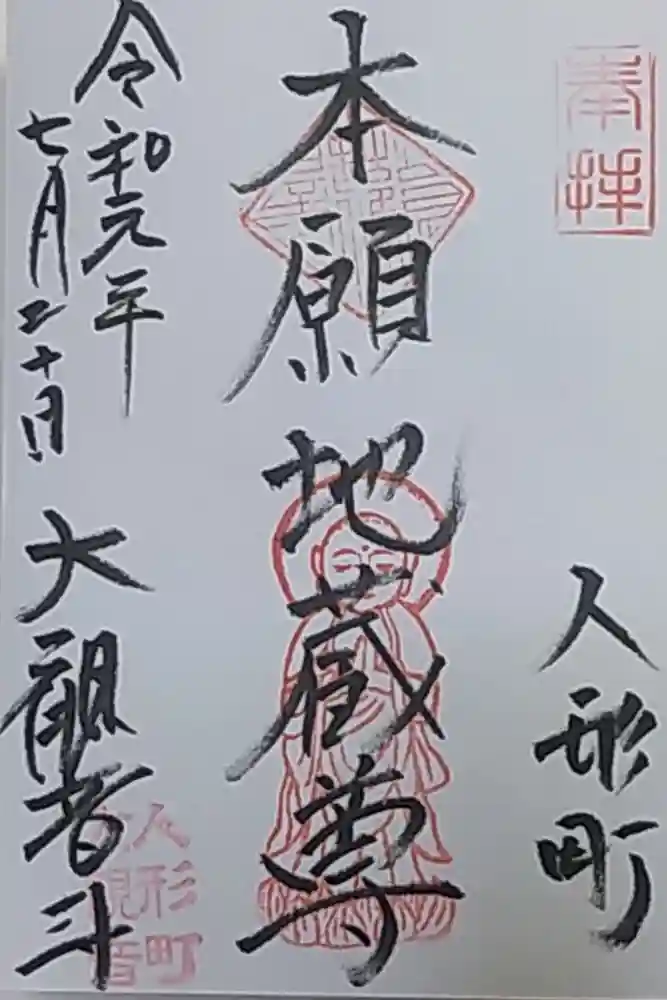 奉拝
人形町
本願地蔵尊
令和元年
七月二十日
大観音寺
人形町
観音